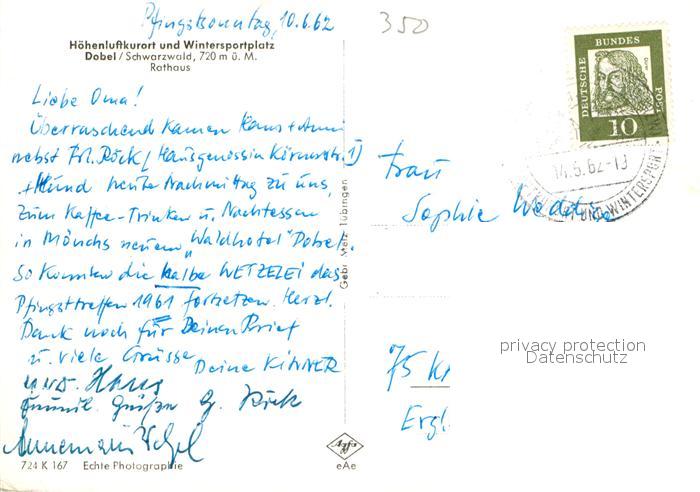 Pfingstsonntag, 10.6.62
350
Höhenluftkurort und Wintersportplatz
Dobel / Schwarzwald, 720 m ü. M.
Rathaus
Liebe Oma!
Überraschend kamen Hans + Anni
nebst Frl. Röck / Hausgenossin Körnerstr. 1)
und heute Nachmittag zu uns,
zum Kaffee-Trinken u. Nachtessen
in Mönchs neuem "Waldhotel" Dobel.
So konnten die halbe WETZELEI das
Pfingsttreffen 1961 fortsetzen. Herzl.
Dank noch für Deinen Brief
u. viele Grüsse Deine KINNER
Hans
Grüßen G. Röck
Annemarie
724 K 167 Echte Photographie
Gebr. Metz Tübingen
Agfa
eAe
DEUTSCHE BUNDES POST
Dürer
10
14.6.62-19
UND WINTERSPORT
Frau
Sophie
75 K
Ergl.
privacy protection
Datenschutz